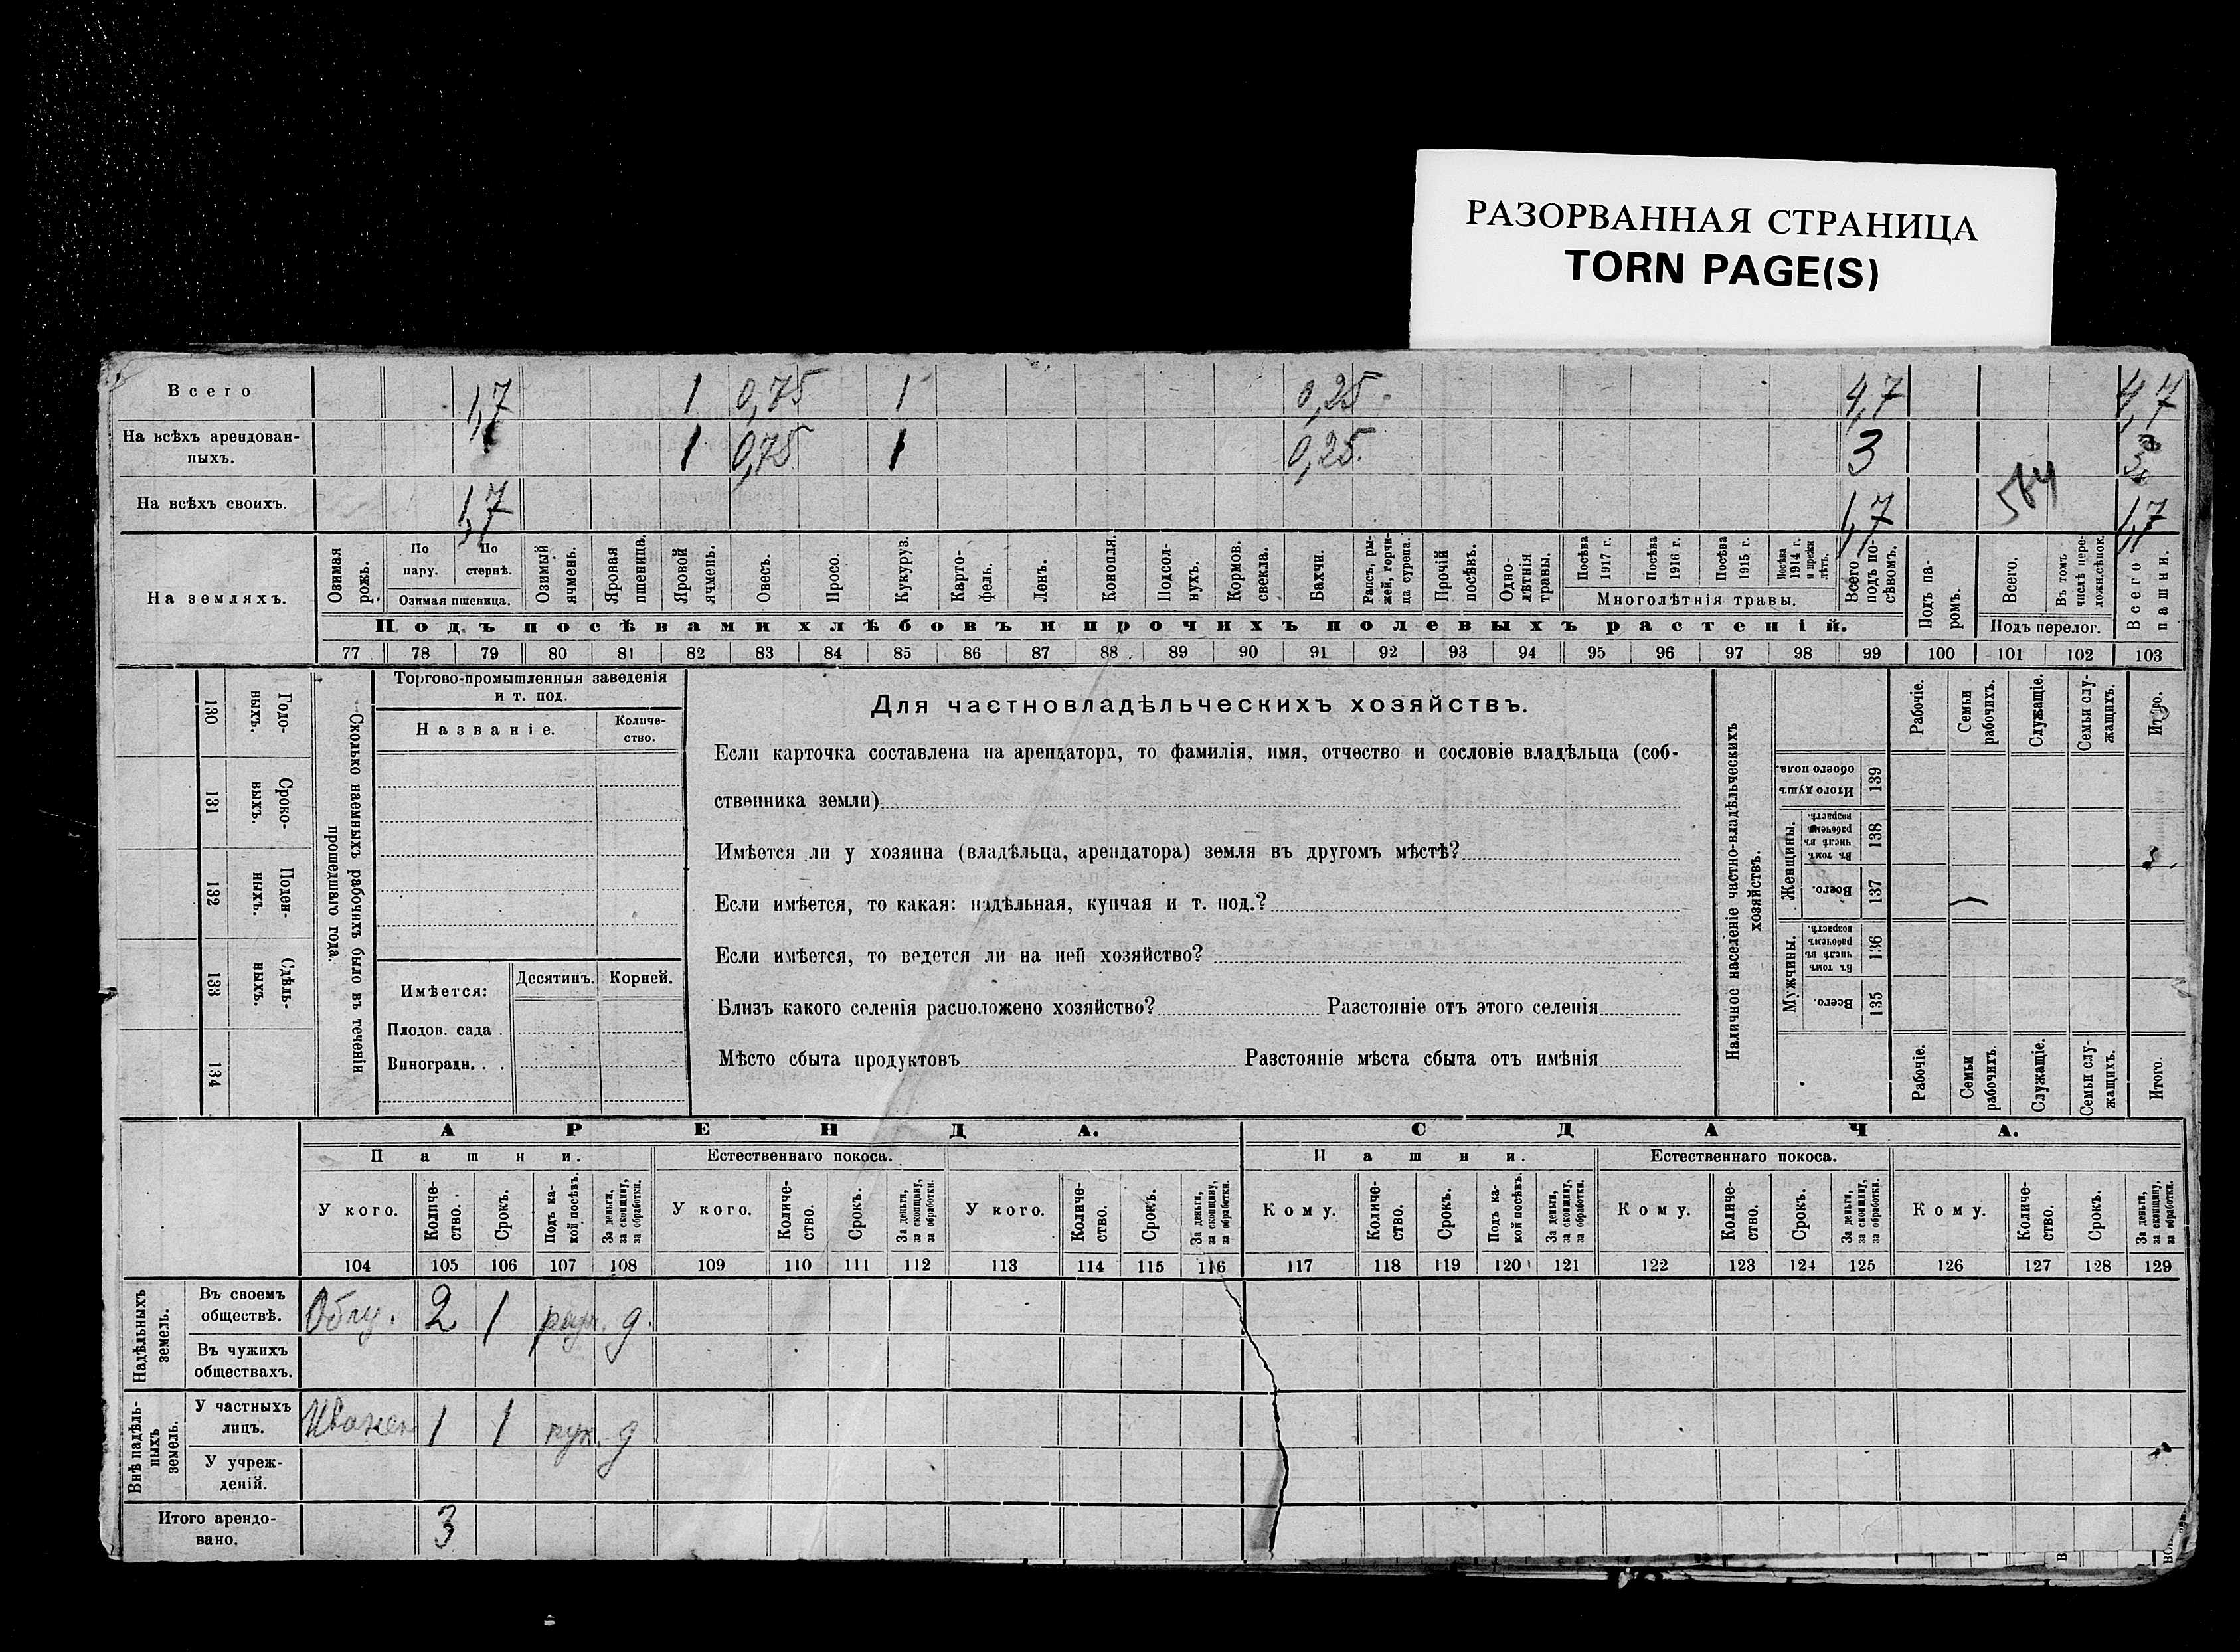 РАЗОРВАННАЯ СТРАНИЦА
TORN PAGE(S)
Всего 1,7 1 0,75 1 0,25 4,7 4,7
На всѣхъ арендован-
ныхъ. 1 0,75 1 0,25. 3 3
На всѣхъ своихъ. 1,7 1,7 584 1,7
На земляхъ.
Озимая рожь.
По пару.
По стернѣ.
Озимая пшеница.
Озимый ячмень.
Яровая пшеница.
Яровой ячмень.
Овесъ.
Просо.
Кукуруз.
Карто-
фель.
Ленъ.
Конопля.
Подсол-
нухъ.
Кормов.
свекла.
Бахчи.
Рапсъ, ры-
жей, горчи-
ца сурепа.
Прочій
посѣвъ.
Одно-
лѣтнія
травы.
Посѣва
1917 г.
Посѣва
1916 г.
Посѣва
1915 г.
Посѣва
1914 г.
и прежн
лѣтъ.
Многолѣтнія травы.
Всего
подъ по-
сѣвомъ.
Подъ па-
ромъ.
Всего.
Въ томъ
числѣ пере-
ложн.сѣнок.
Подъ перелог.
Всего
пашни.
Подъ посѣвами хлѣбовъ и прочихъ полевыхъ растеній.
77 78 79 80 81 82 83 84 85 86 87 88 89 90 91 92 93 94 95 96 97 98 99 100 101 102 103
Годо-
выхъ.
130
Сроко-
ныхъ.
131
Поден-
ныхъ.
132
Сдѣль-
ныхъ.
133
134
Сколько наемныхъ рабочихъ было въ теченіи
прошедшаго года.
Торгово-промышленныя заведенія
и т. под.
Названіе.
Количе-
ство.
Имѣется:
Десятинъ.
Корней.
Плодов. сада .
Виноградн. . .
Для частновладѣльческихъ хозяйствъ.
Если карточка составлена на арендатора, то фамилія, имя, отчество и сословіе владѣльца (соб-
ственника земли)
Имѣется ли у хозяина (владѣльца, арендатора) земля въ другомъ мѣстѣ?
Если имѣется, то какая: надѣльная, купчая и т. под.?
Если имѣется, то ведется ли на ней хозяйство?
Близъ какого селенія расположено хозяйство? Разстояніе отъ этого селенія
Мѣсто сбыта продуктовъ Разстояніе мѣста сбыта отъ имѣнія
Наличное населеніе частно-владѣльческихъ
хозяйствъ.
Рабочіе.
Семьи
рабочихъ.
Служащіе.
Семьи слу-
жащихъ.
Итого.
Итого душъ
обоего пола.
139
Женщины.
Въ томъ
числѣ въ
рабочемъ
возрастѣ.
138
Всего.
137
Мужчины.
Въ томъ
числѣ въ
рабочемъ
возрастѣ.
136
Всего.
135
Рабочіе.
Семьи
рабочихъ.
Служащіе.
Семьи слу-
жащихъ.
Итого
АРЕНДА. СДАЧА.
Пашни. Естественнаго покоса. Пашни. Естественнаго покоса.
У кого.
Количе-
ство.
Срокъ.
Подъ ка-
кой посѣвъ.
За деньги,
за скопщину,
за обработки.
У кого.
Количе-
ство.
Срокъ.
За деньги,
за скопщину,
за обработки.
У кого.
Количе-
ство.
Срокъ.
За деньги,
за скопщину,
за обработки.
Кому.
Количе-
ство.
Срокъ.
Подъ ка-
кой посѣвъ.
За деньги,
за скопщину,
за обработки.
Кому.
Количе-
ство.
Срокъ.
За деньги,
за скопщину,
за обработки.
Кому.
Количе-
ство.
Срокъ.
За деньги,
за скопщину,
за обработки.
104 105 106 107 108 109 110 111 112 113 114 115 116 117 118 119 120 121 122 123 124 125 126 127 128 129
Надѣльныхъ
земель.
Въ своемъ
обществѣ. 2 1 д.
Въ чужихъ
обществахъ.
Внѣ надѣль-
ныхъ
земель.
У частныхъ
лицъ. 1 1 кук. д
У учреж-
деній.
Итого арендо-
вано. 3